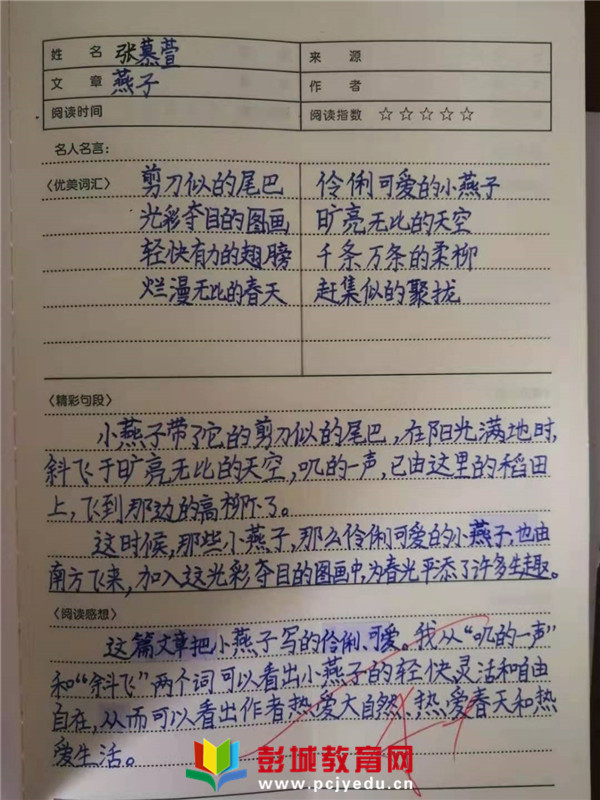 姓 名 张慕萱 来 源
文 章 燕子 作 者
阅读时间 阅读指数 ☆☆☆☆☆
名人名言：
〈优美词汇〉 剪刀似的尾巴 伶俐可爱的小燕子
光彩夺目的图画 旷亮无比的天空
轻快有力的翅膀 千条万条的柔柳
烂漫无比的春天 赶集似的聚拢
〈精彩句段〉
小燕子带了它的剪刀似的尾巴,在阳光满地时,
斜飞于旷亮无比的天空,叽的一声,已由这里的稻田
上,飞到那边的高柳下了。
这时候,那些小燕子,那么伶俐可爱的小燕子,也由
南方飞来,加入这光彩夺目的图画中,为春光平添了许多生趣。
〈阅读感想〉
这篇文章把小燕子写的伶俐可爱。我从“叽的一声”
和“斜飞”两个词可以看出小燕子的轻快、灵活和自由
自在,从而可以看出作者热爱大自然、热爱春天和热
爱生活。
彭城教育网
www.pcjyedu.cn